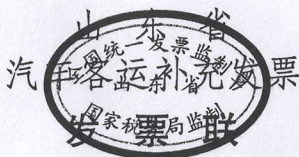 山东省
汽车客运补充发票
全国统一发票监制章
山东省
国家税务局监制
发票联